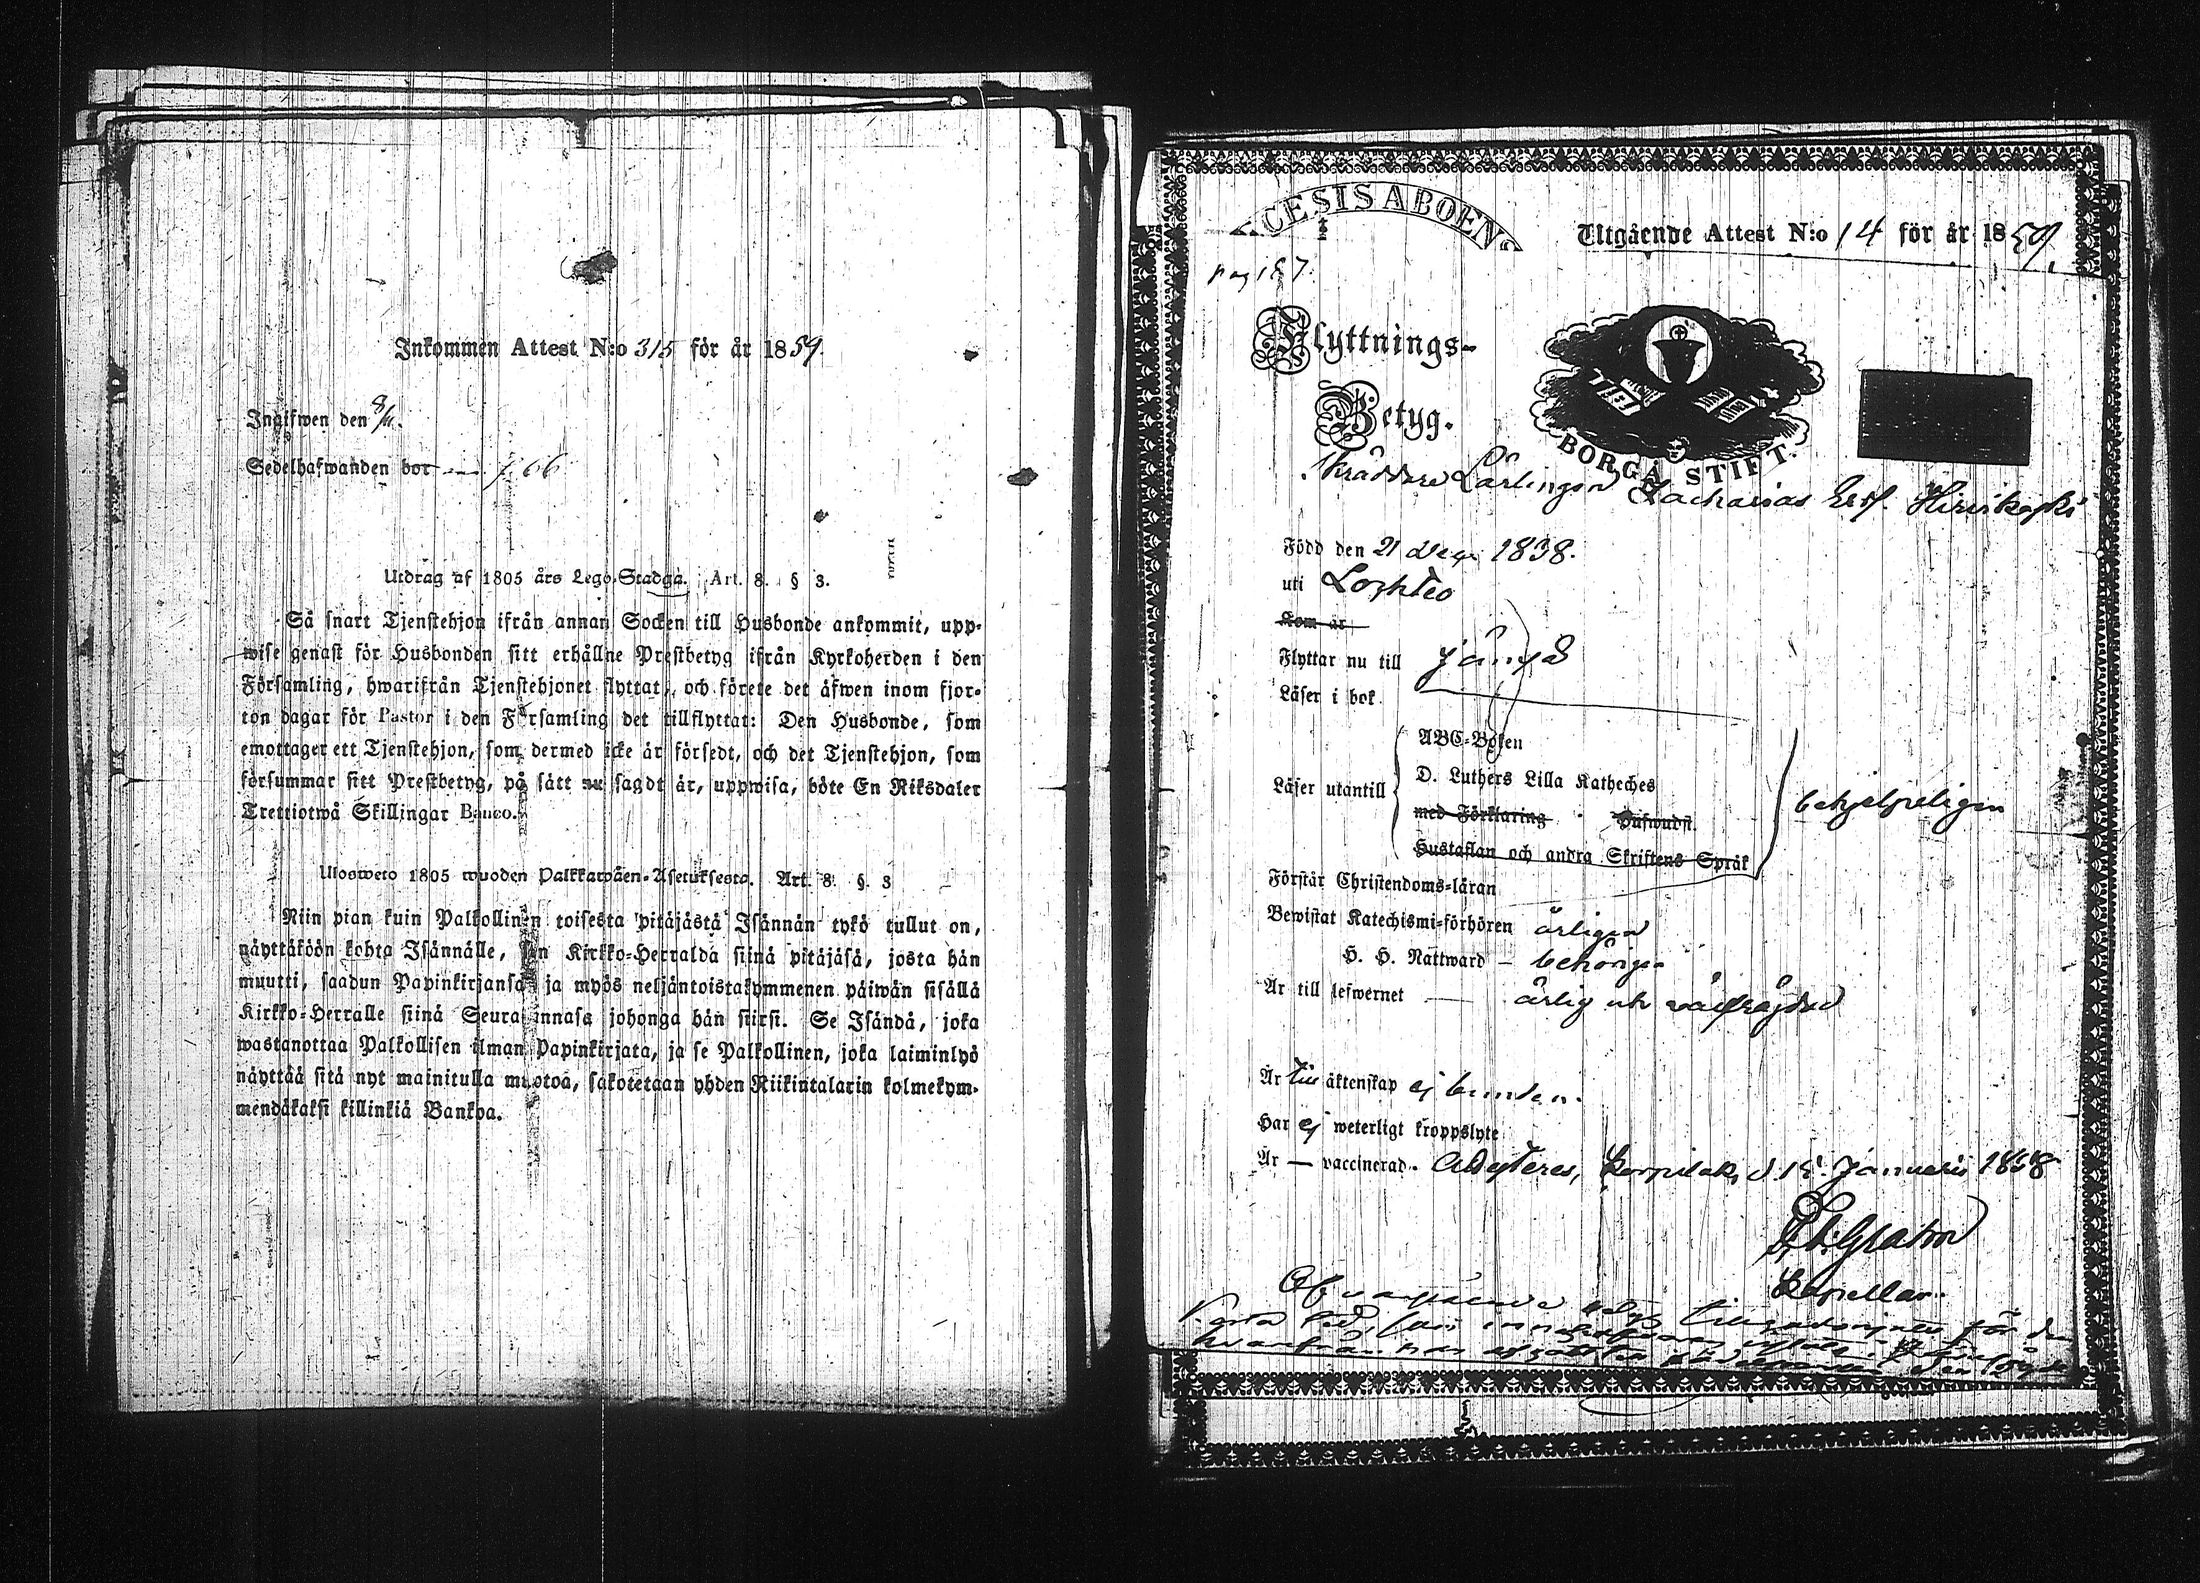 Inkommen Attest N:o 315 för år 1859.
Ingifwen den 8/11.
Sedelhafwanden bor — p. 66
Utdrag af 1805 års Lego-Stadga. Art. 8. § 3.
Så snart Tjenstehjon ifrån annan Socken till Husbonde ankommit, upp-
wise genast för Husbonden sitt erhållne Prestbetyg ifrån Kyrkoherden i den
Församling, hwarifrån Tjenstehjonet flyttat, och förete det äfwen inom fjor-
ton dagar för Pastor i den Församling det tillflyttat: Den Husbonde, som
emottager ett Tjenstehjon, som dermed icke är försedt, och det Tjenstehjon, som
försummar sitt Prestbetyg, på sätt nu sagdt är, uppwisa, böte En Riksdaler
Trettiotwå Skillingar Banco.
Ulosweto 1805 wuoden Palkkawäen-Asetuksesta. Art. 8. §. 3
Niin pian kuin Palkollinen toisesta pitäjästä Isännän tykö tullut on,
näyttäköön kohta Isännälle, sen Kirkko-Herralda siinä pitäjäsä, josta hän
muutti, saadun Papinkirjansa ja myös neljäntoistakymmenen päiwän sisällä
Kirkko-Herralle siinä Seurakunnasa johonga hän siirsi. Se Isändä, joka
wastanottaa Palkollisen ilman Papinkirjata, ja se Palkollinen, joka laiminlyö
näyttää sitä nyt mainitulla muotoa, sakotetaan yhden Riikintalarin kolmekym-
mendäkaksi killinkiä Bankoa.
CESIS ABOENS
Utgående Attest N:o 14 för år 1859.
pag 187.
Flyttnings-
Betyg.
BORGÅ STIFT.
Skräddare Lärlingen Zacharias Ersf. Hirvikoski
Född den 21 1838.
uti Lochteo
Kom år
Flyttar nu till
Läser i bok
ABC-Boken
D. Luthers Lilla Katheches
Läser utantill
med Förklaring Hufwudst.
behjelpeligen
Hustaflan och andra Skriftens Språk
Förstår Christendoms-läran
Bewistat Katechismi-förhören ärligen
H. H. Nattward — behörigen
Är till lefwernet — ärlig och välfrägdad
Är till äktenskap ej bunden.
Har ej weterligt kroppslyte
Är — vaccinerad. Attesteras, d. 15 Januarii 1858
Kapellan.